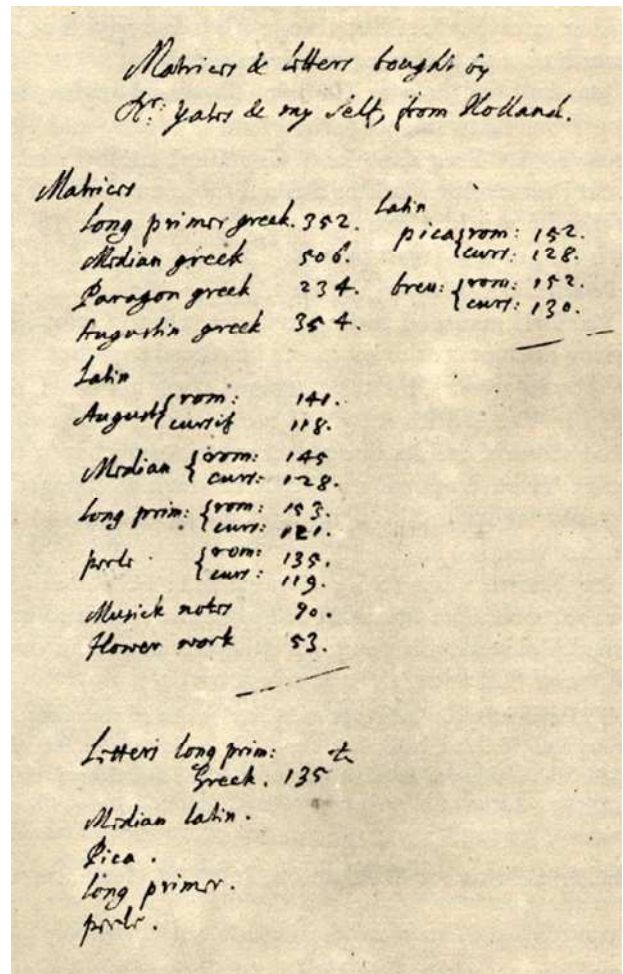 Matrices & letters bought by
Dr: Yates & my Self, from Holland.
Matrices
long primer greek. 352.
Median greek 506.
Paragon greek 234.
Augustin greek 354.
Latin
August { rom: 141.
cursif 118.
Median { rom: 145
curs: 128.
long prim: { rom: 153.
curs: 121.
perle { rom: 135.
curs: 119.
Musick notes 90.
flower work 53.
Latin
pica { rom: 152.
curs: 128.
brev: { rom: 152.
curs: 130.
Letters long prim:
Greek. 135
Median latin.
Pica.
long primer.
perle.